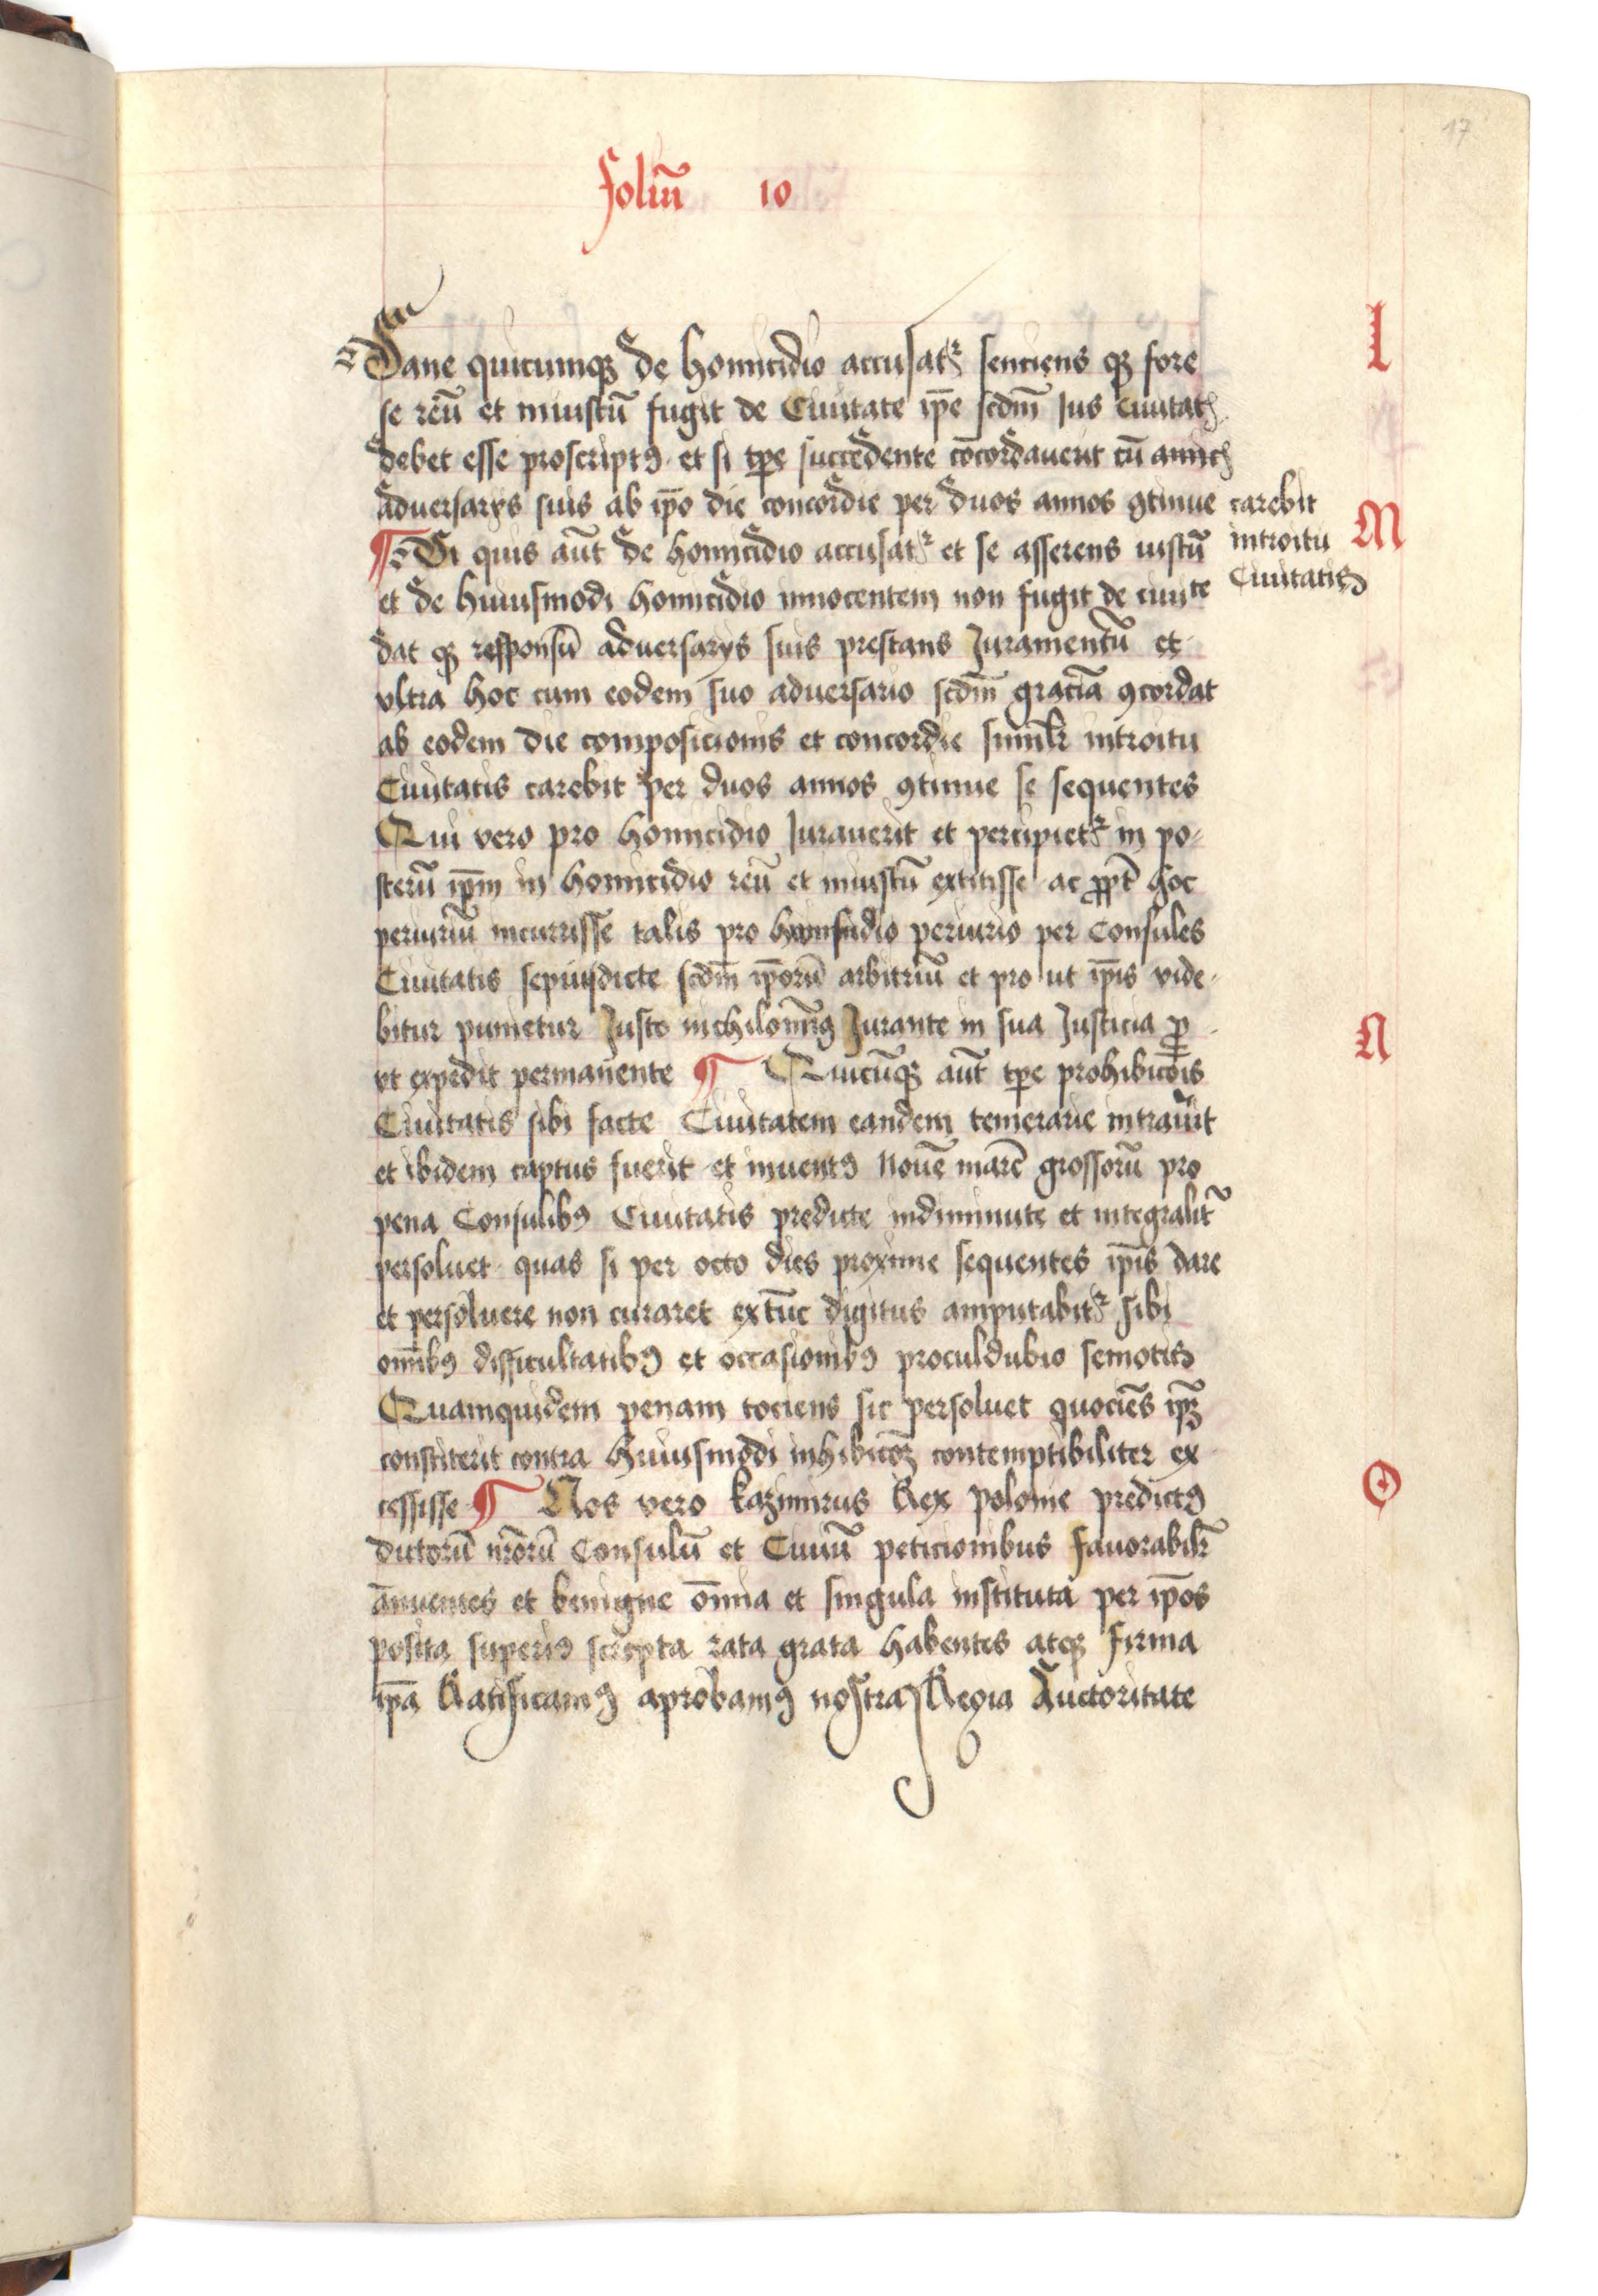 17
foliū 10
L
Sane quicumqꝫ de homicidio accusatᷣ senciens qꝫ fore
se reū et iniustū fugit de Ciuitate ip̄e scdm̄ Jus Ciuitatꝭ
debet esse proscriptꝰ et si tp̄e succedente cōcordauerit cū amicꝭ
aduersarys suis ab ip̄o die concordie per duos annos ꝯtinue carebit
introitu
Ciuitatis
M
¶ Si quis aūt de homicidio accusatᷣ et se asserens iustū
et de huiusmodi homicidio innocentem non fugit de ciuite
dat qꝫ responsū aduersarys suis prestans Juramentū et
vltra hoc cum eodem suo aduersario scdm̄ graciā ꝯcordat
ab eodem die composicionis et concordie simil̄r introitu
Ciuitatis carebit per duos annos ꝯtinue se sequentes
Qui vero pro homicidio Jurauerit et percipietᷣ in po-
sterū ip̄m in homicidio reū et iniustū extitisse ac ꝓpt̄ hoc
periuriū incurrisse talis pro periurio per Consules
Ciuitatis sepiusdicte scdm̄ ip̄orū arbitriū et pro ut ip̄is vide-
bitur punietur Juste nichilomīꝰ Jurante in sua Justicia ꝓ
N
vt expedit permanente ¶ Quicūqꝫ aūt tp̄e prohibicōis
Ciuitatis sibi facte Ciuitatem eandem temerarie intrau̅it
et ibidem captus fuerit et inuentꝰ Nouē marc̄ grossorū pro
pena Consulibꝰ Ciuitatis predicte indiminute et integralit̄
persoluet quas si per octo dies proxime sequentes ip̄is dare
et persoluere non curaret extūc digitus amputabitᷣ sibi
om̄ibꝰ difficultatibꝰ et occasionibꝰ proculdubio semotis
Quamquidem penam tociens sic persoluet quociēs ip̄ꝫ
constiterit contra huiusmodi inhibicōꝫ contemptibiliter ex
O
cessisse ¶ Nos vero kazimirus Rex polonie predictꝰ
dictorū nr̄orū Consulū et Ciuiū peticionibus fauorabil̄r
ānuentes et benigne om̄ia et singula instituta per ip̄os
posita superiꝰ scripta rata grata habentes atqꝫ firma
ip̄a Ratificamꝰ aprobamꝰ nostra Regia Auctoritate